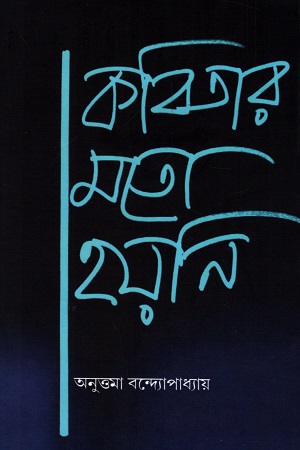 কবিতার
মতো
হয়নি
অনুত্তমা বন্দ্যোপাধ্যায়